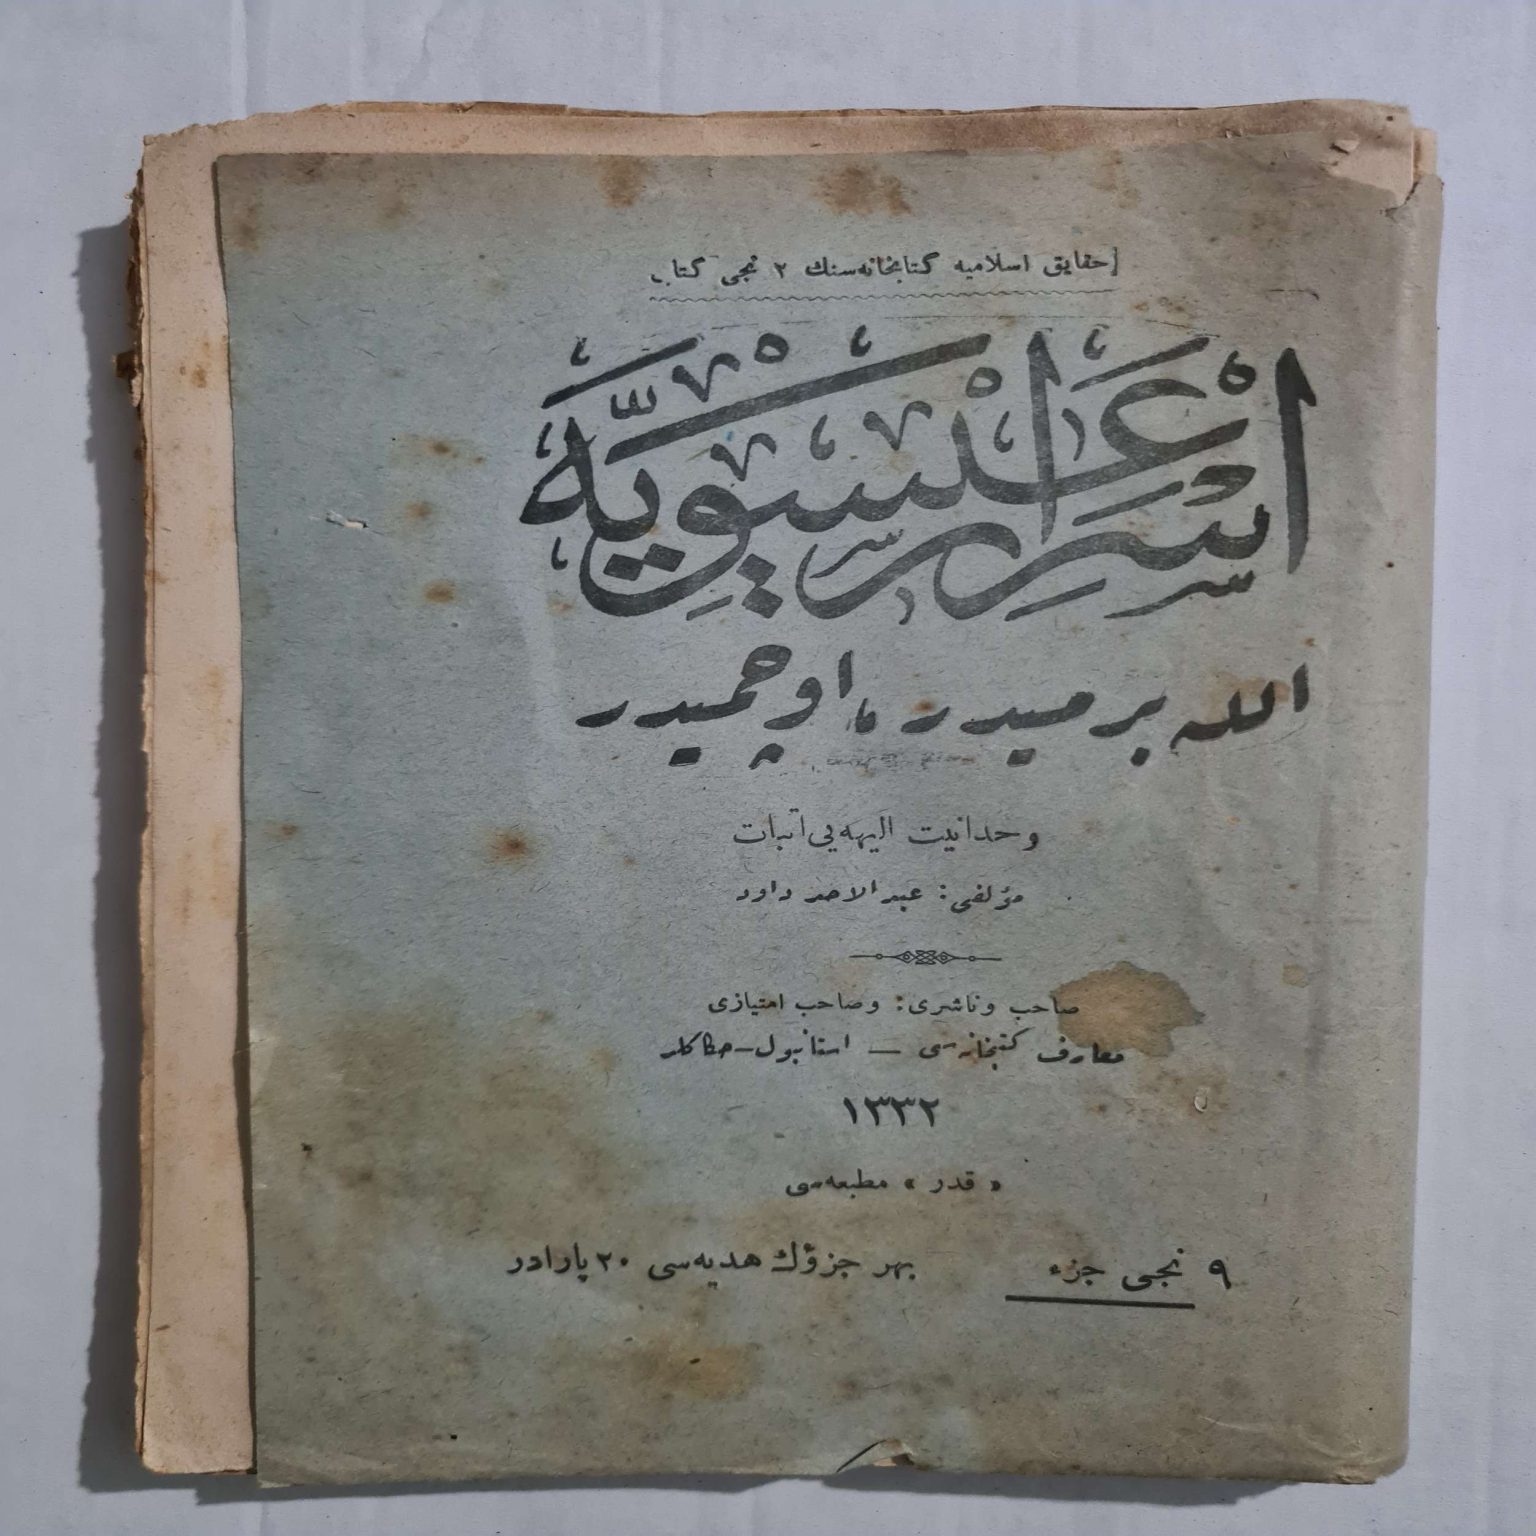 حقایق اسلامیه کتابخانه‌سنك ۲ نجی کتاب
اسرار عیسویه
الله بر میدر، اوچمیدر
وحدانیت الهیه‌یی اثبات
مؤلفی: عبد الاحد داود
صاحب و ناشری: و صاحب امتیازی
معارف کتبخانه‌سی — استانبول – حکاکلر
۱۳۳۲
« قدر » مطبعه‌سی
۹ نجی جزء
بهر جزؤك هدیه‌سی ۲۰ پارادر